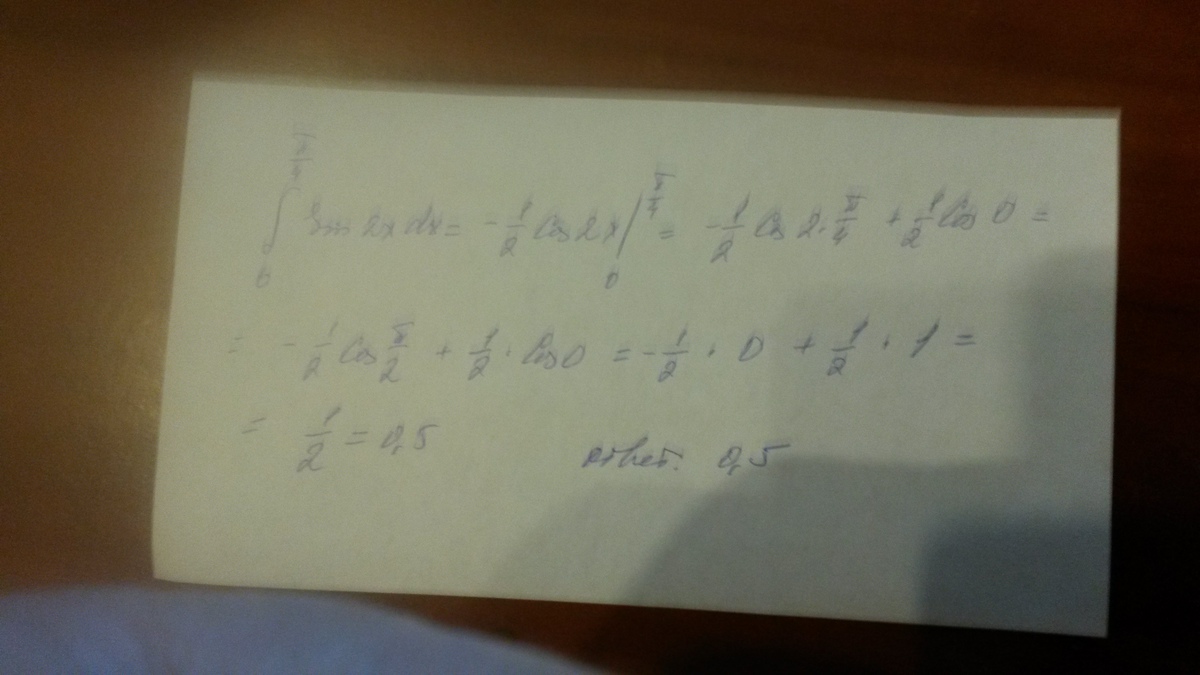 ∫₀^(π/4) sin 2x dx = -1/2 cos 2x |₀^(π/4) = -1/2 cos 2·π/4 + 1/2 cos 0 =
= -1/2 cos π/2 + 1/2 · cos 0 = -1/2 · 0 + 1/2 · 1 =
= 1/2 = 0,5 ответ. 0,5